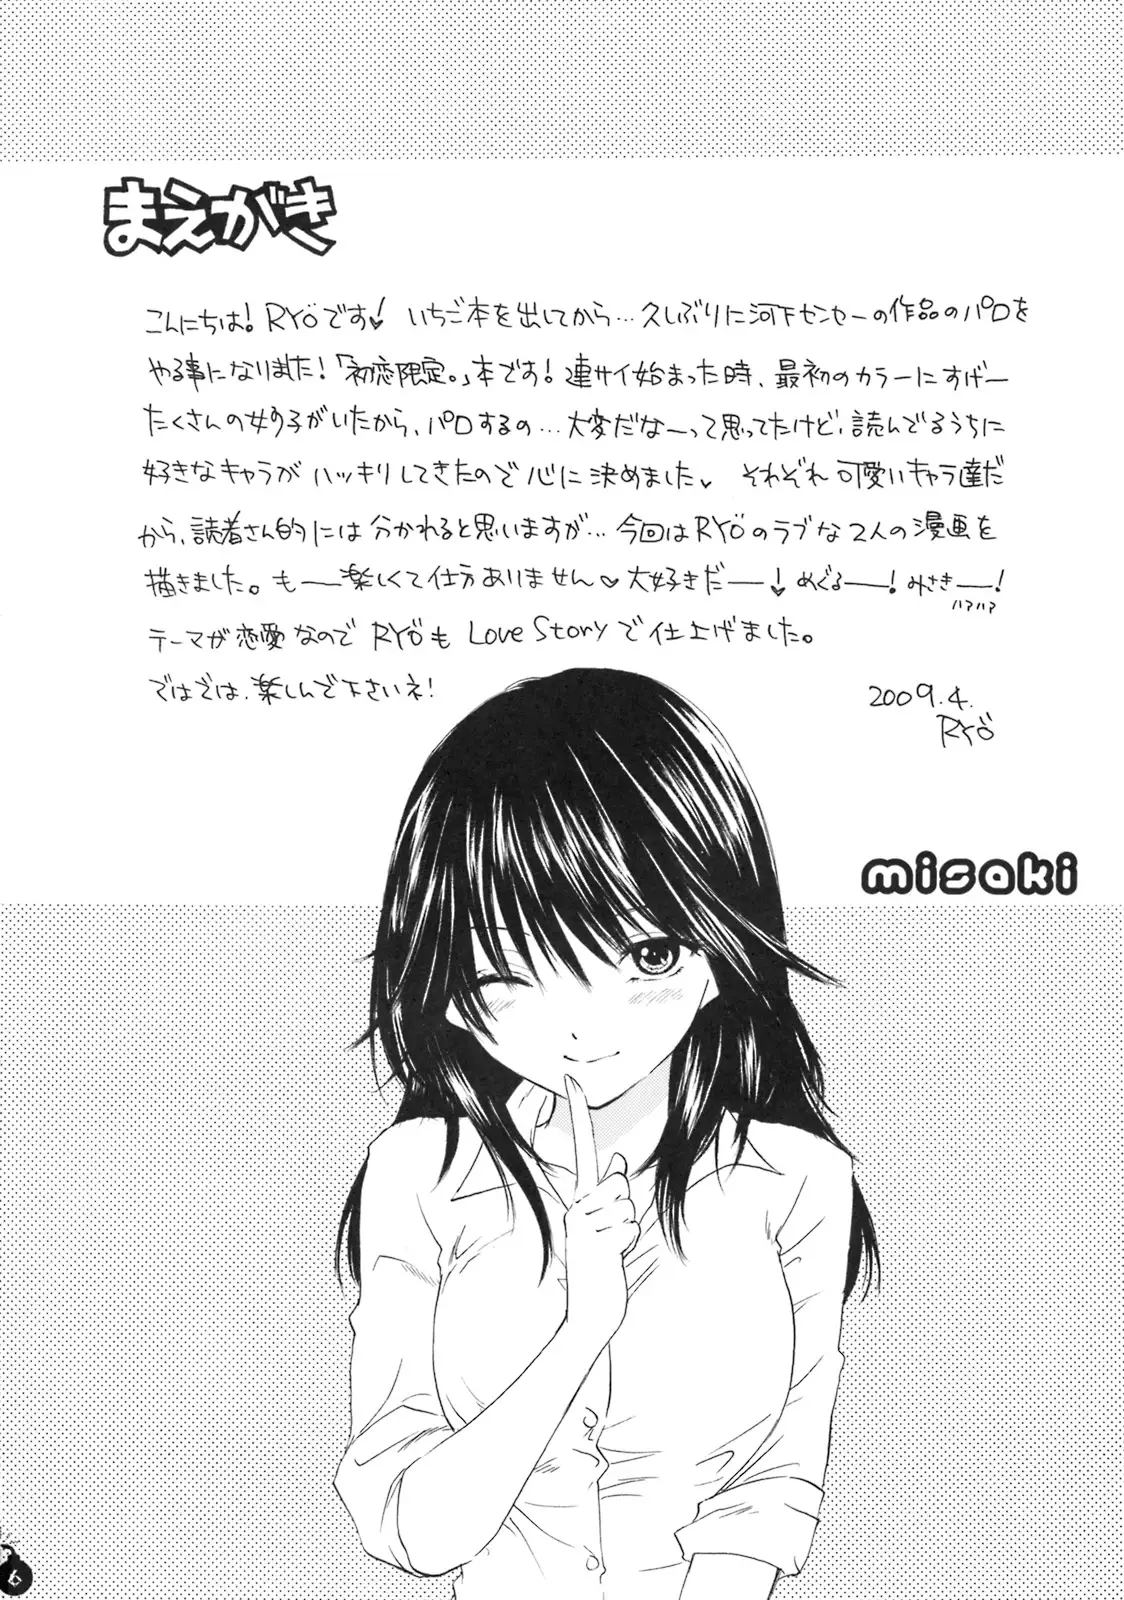 まえがき
こんにちは!RYÖです♥ いちご本を出してから…久しぶりに河下センセーの作品のパロを
やる事になりました!「初恋限定。」本です!連サイ始まった時、最初のカラーにすげー
たくさんの女の子がいたから、パロするの…大変だなーって思ってたけど、読んでるうちに
好きなキャラがハッキリしてきたので心に決めました。 それぞれ可愛いキャラ達だ
から、読者さん的には分かれると思いますが…今回はRYÖのラブな2人の漫画を
描きました。もー楽しくて仕方ありません♥大好きだー!めぐるー!みさきー!
ハァハァ
テーマが恋愛なのでRYÖもLove Storyで仕上げました。
ではでは、楽しんで下さいネ!
2009.4.
RYÖ
misaki
6